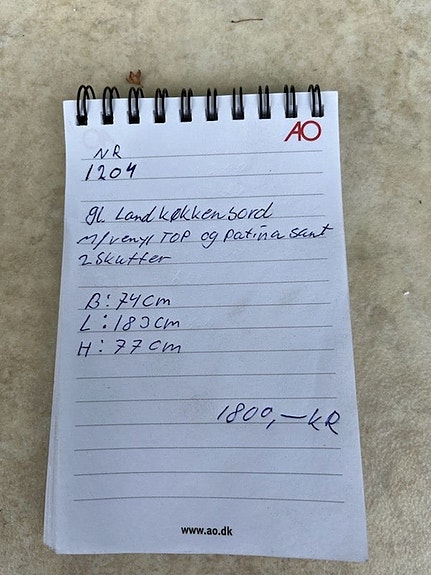 AO
NR
1204
gl. Landkøkkenbord
m/venyl TOP og patina samt
2 skuffer
B: 74 cm
L: 183 cm
H: 77 cm
1800,- KR
www.ao.dk